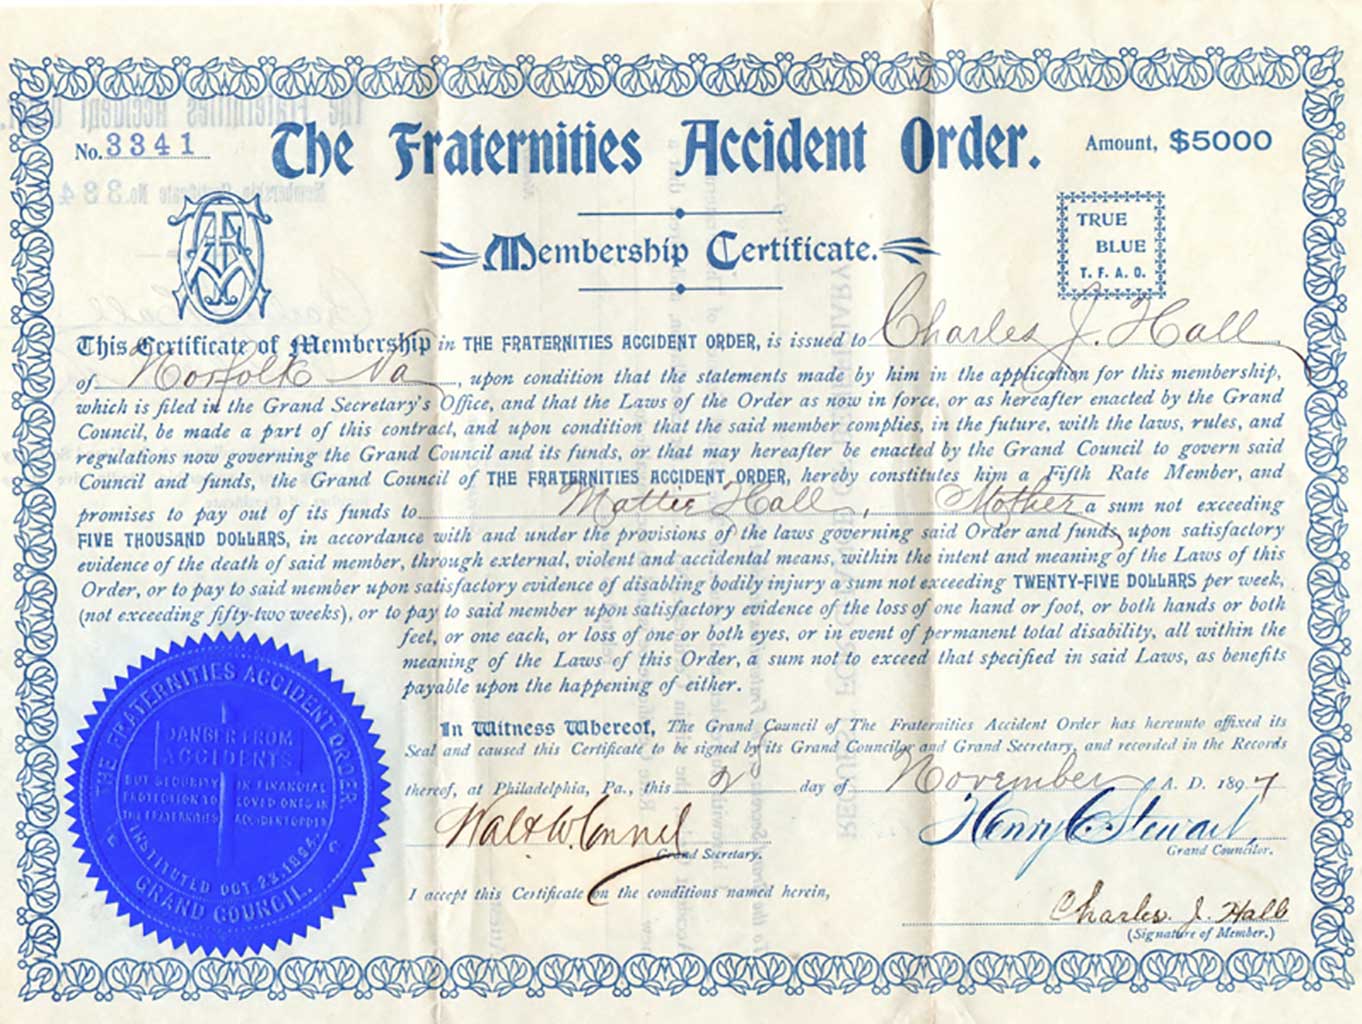 No. 3341
The Fraternities Accident Order.
Amount, $5000
Membership Certificate.
TRUE
BLUE
T. F. A. O.
This Certificate of Membership in THE FRATERNITIES ACCIDENT ORDER, is issued to Charles J. Hall
of Norfolk Va, upon condition that the statements made by him in the application for this membership,
which is filed in the Grand Secretary's Office, and that the Laws of the Order as now in force, or as hereafter enacted by the Grand
Council, be made a part of this contract, and upon condition that the said member complies, in the future, with the laws, rules, and
regulations now governing the Grand Council and its funds, or that may hereafter be enacted by the Grand Council to govern said
Council and funds, the Grand Council of THE FRATERNITIES ACCIDENT ORDER, hereby constitutes him a Fifth Rate Member, and
promises to pay out of its funds to Mattie Hall, Mother a sum not exceeding
FIVE THOUSAND DOLLARS, in accordance with and under the provisions of the laws governing said Order and funds, upon satisfactory
evidence of the death of said member, through external, violent and accidental means, within the intent and meaning of the Laws of this
Order, or to pay to said member upon satisfactory evidence of disabling bodily injury a sum not exceeding TWENTY-FIVE DOLLARS per week,
(not exceeding fifty-two weeks), or to pay to said member upon satisfactory evidence of the loss of one hand or foot, or both hands or both
feet, or one each, or loss of one or both eyes, or in event of permanent total disability, all within the
meaning of the Laws of this Order, a sum not to exceed that specified in said Laws, as benefits
payable upon the happening of either.
In Witness Whereof, The Grand Council of The Fraternities Accident Order has hereunto affixed its
Seal and caused this Certificate to be signed by its Grand Councilor and Grand Secretary, and recorded in the Records
thereof, at Philadelphia, Pa., this 23 day of November A. D. 1897
Grand Secretary.
Henry C. Stewart,
Grand Councilor.
I accept this Certificate on the conditions named herein,
Charles J. Hall
(Signature of Member.)
THE FRATERNITIES ACCIDENT ORDER
DANGER FROM
ACCIDENTS
BUT SECURITY IN FINANCIAL
PROTECTION TO LOVED ONES IN
THE FRATERNITIES ACCIDENT ORDER
INSTITUTED OCT. 23, 1894.
GRAND COUNCIL.